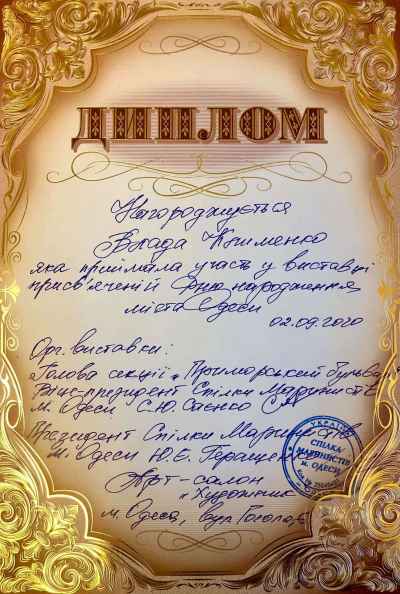 ДИПЛОМ
Нагороджується
Влада Клименко
яка приймала участь у виставці
присв'яченій Дню народження
міста Одеси
02.09.2020
Орг. виставки:
Голова секції "Приморський бульвар"
Віце-президент Спілки Мариністів
м. Одеси С.Ю. Саєнко
Президент Спілки Мариністів
м. Одеси Ю.Є. Геращенко
Арт-салон
"Художник"
м. Одеса, вул. Гоголя
УКРАЇНА
СПІЛКА
МАРИНІСТІВ
м. ОДЕСИ